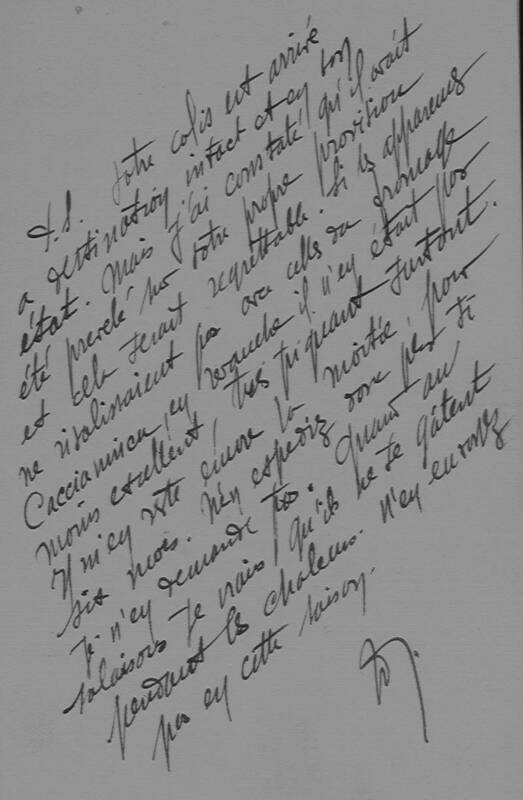 P.S. Votre colis est arrivé
à destination intact et en bon
état. Mais j'ai constaté qu'il avait
été prélevé sur votre propre provision
et cela serait regrettable. Si les apparences
ne rivalisaient pas avec celles du fromage
Cacciaminca, en revanche il n'en était pas
moins excellent, très piquant surtout.
Il m'en reste encore la moitié, pour
six mois. N'en expédiez donc pas si
je n'en demande pas. Quant au
salaisons je crains qu'ils ne se gâtent
pendant les chaleurs. N'en envoyez
pas en cette saison.